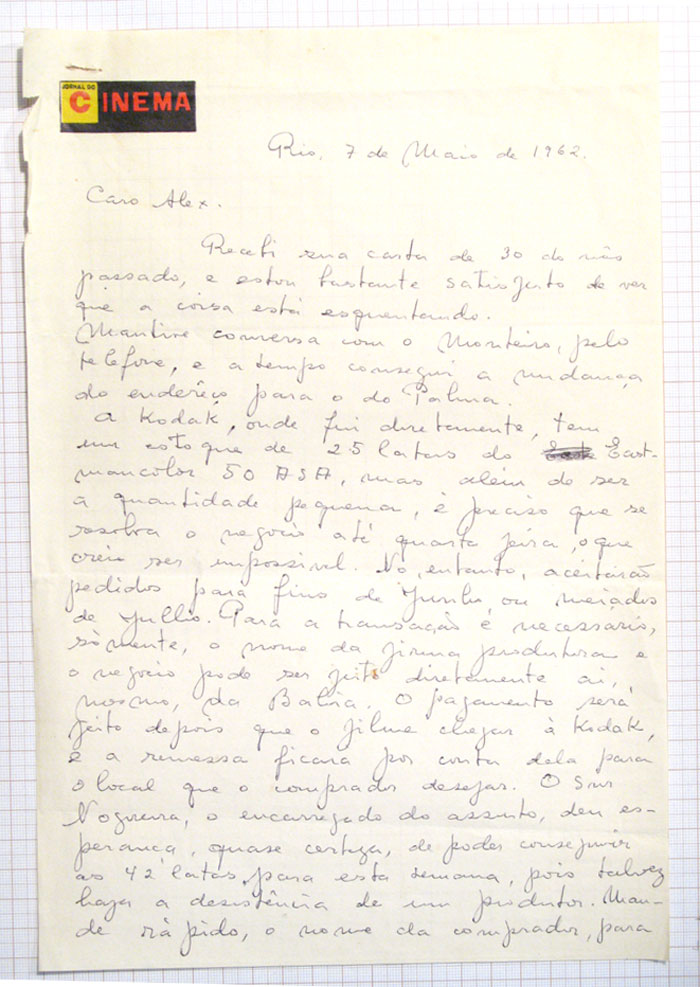 JORNAL DO
CINEMA
Rio, 7 de Maio de 1962.
Caro Alex.
Recebi sua carta de 30 do mês
passado, e estou bastante satisfeito de ver
que a coisa está esquentando.
Mantive conversa com o Monteiro, pelo
telefone, e a tempo consegui a mudança
do endereço para o do Palma.
A Kodak, onde fui diretamente, tem
um estoque de 25 latas do East-
mancolor 50 ASA, mas além de ser
a quantidade pequena, é preciso que se
resolva o negocio até quarta feira, o que
creio ser impossivel. No, entanto, aceitarão
pedidos para fins de Junho, ou meiados
de Julho. Para a transação é necessario,
sòmente, o nome da firma produtora e
o negocio pode ser feito diretamente ai,
mesmo, da Bahia. O pagamento será
feito depois que o filme chegar à Kodak,
e a remessa ficara por conta dela para
o local que o comprador desejar. O Snr
Nogueira, o encarregado do assunto, deu es-
perança, quase certeza, de poder conseguir
as 42 latas para esta semana, pois talvez
haja a desistência de um produtor. Man-
de rápido, o nome da comprador, para